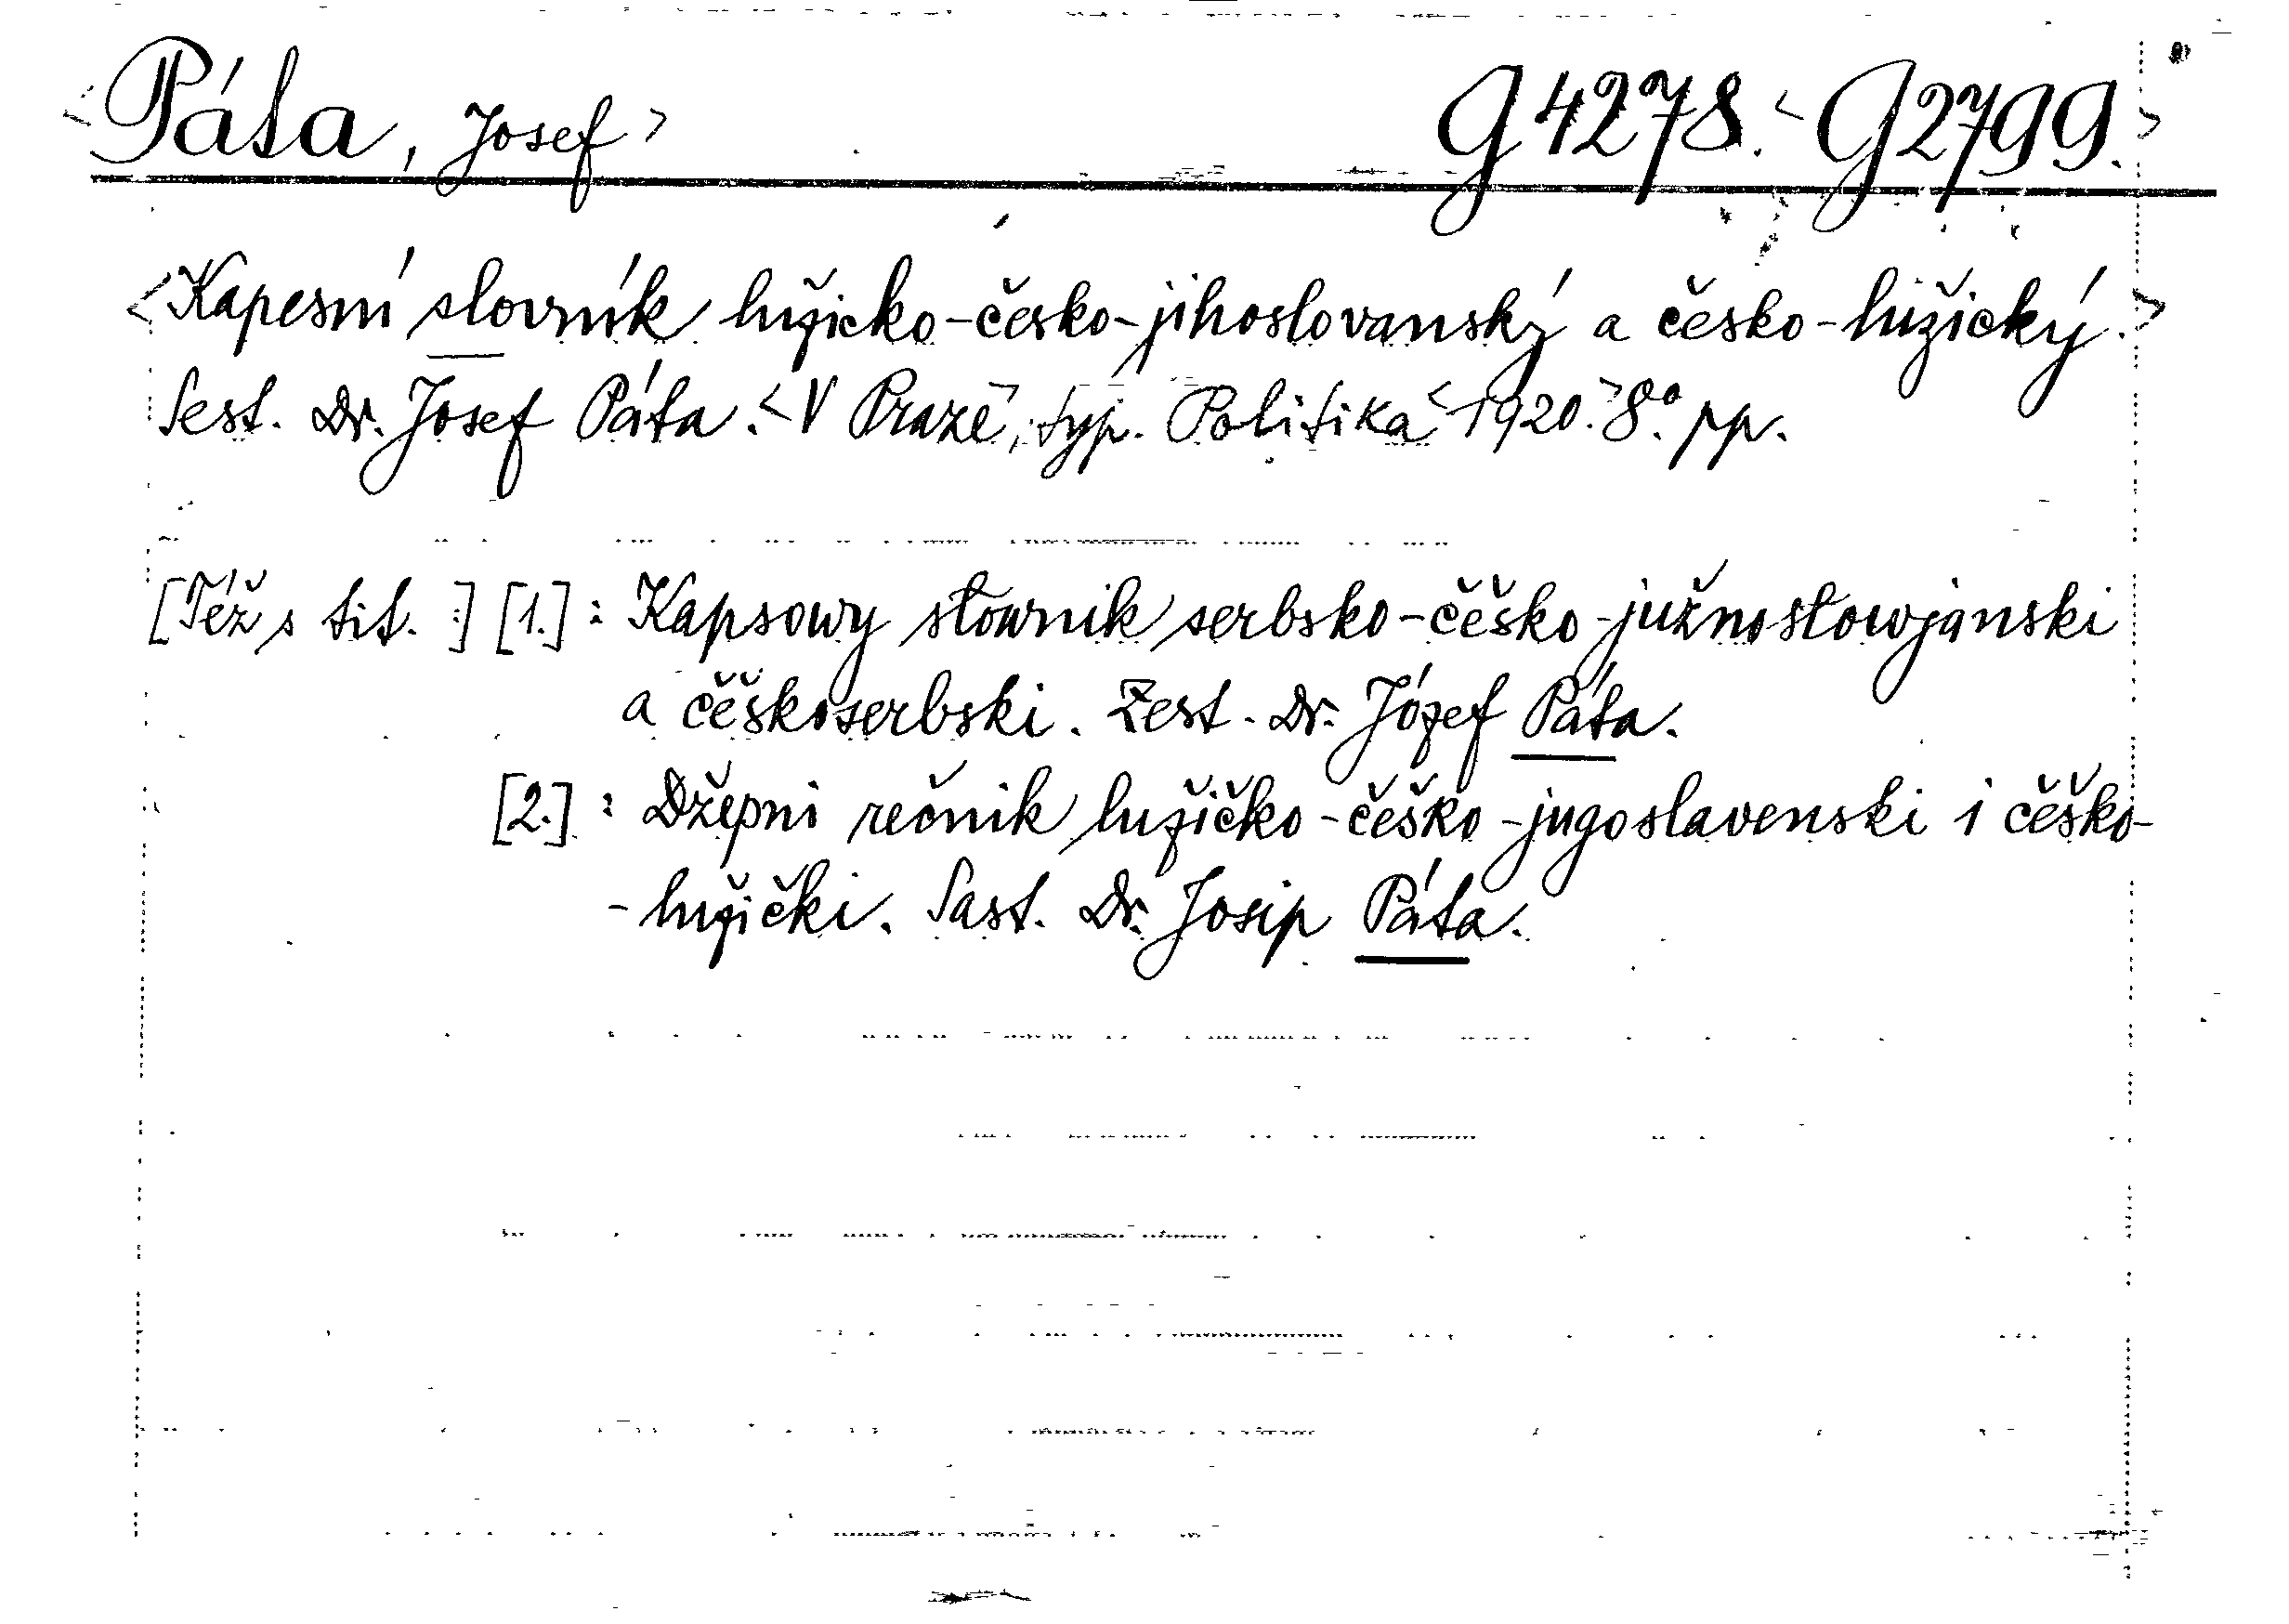 <Páta, Josef> G 4278. <G 2799.>
<Kapesní slovník lužicko-česko-jihoslovanský a česko-lužický.>
Sest. Dr. Josef Páta. <V Praze, typ. Politika <1920.> 8º. pp.
[Též s tit. :] [1.] : Kapsowy słownik serbsko-čěsko-južnosłowjanski
a čěškoserbski. Zest. Dr. Józef Páta.
[2.] : Džepni rečnik lužičko-češko-jugoslavenski i češko-
-lužički. Sast. Dr. Josip Páta.